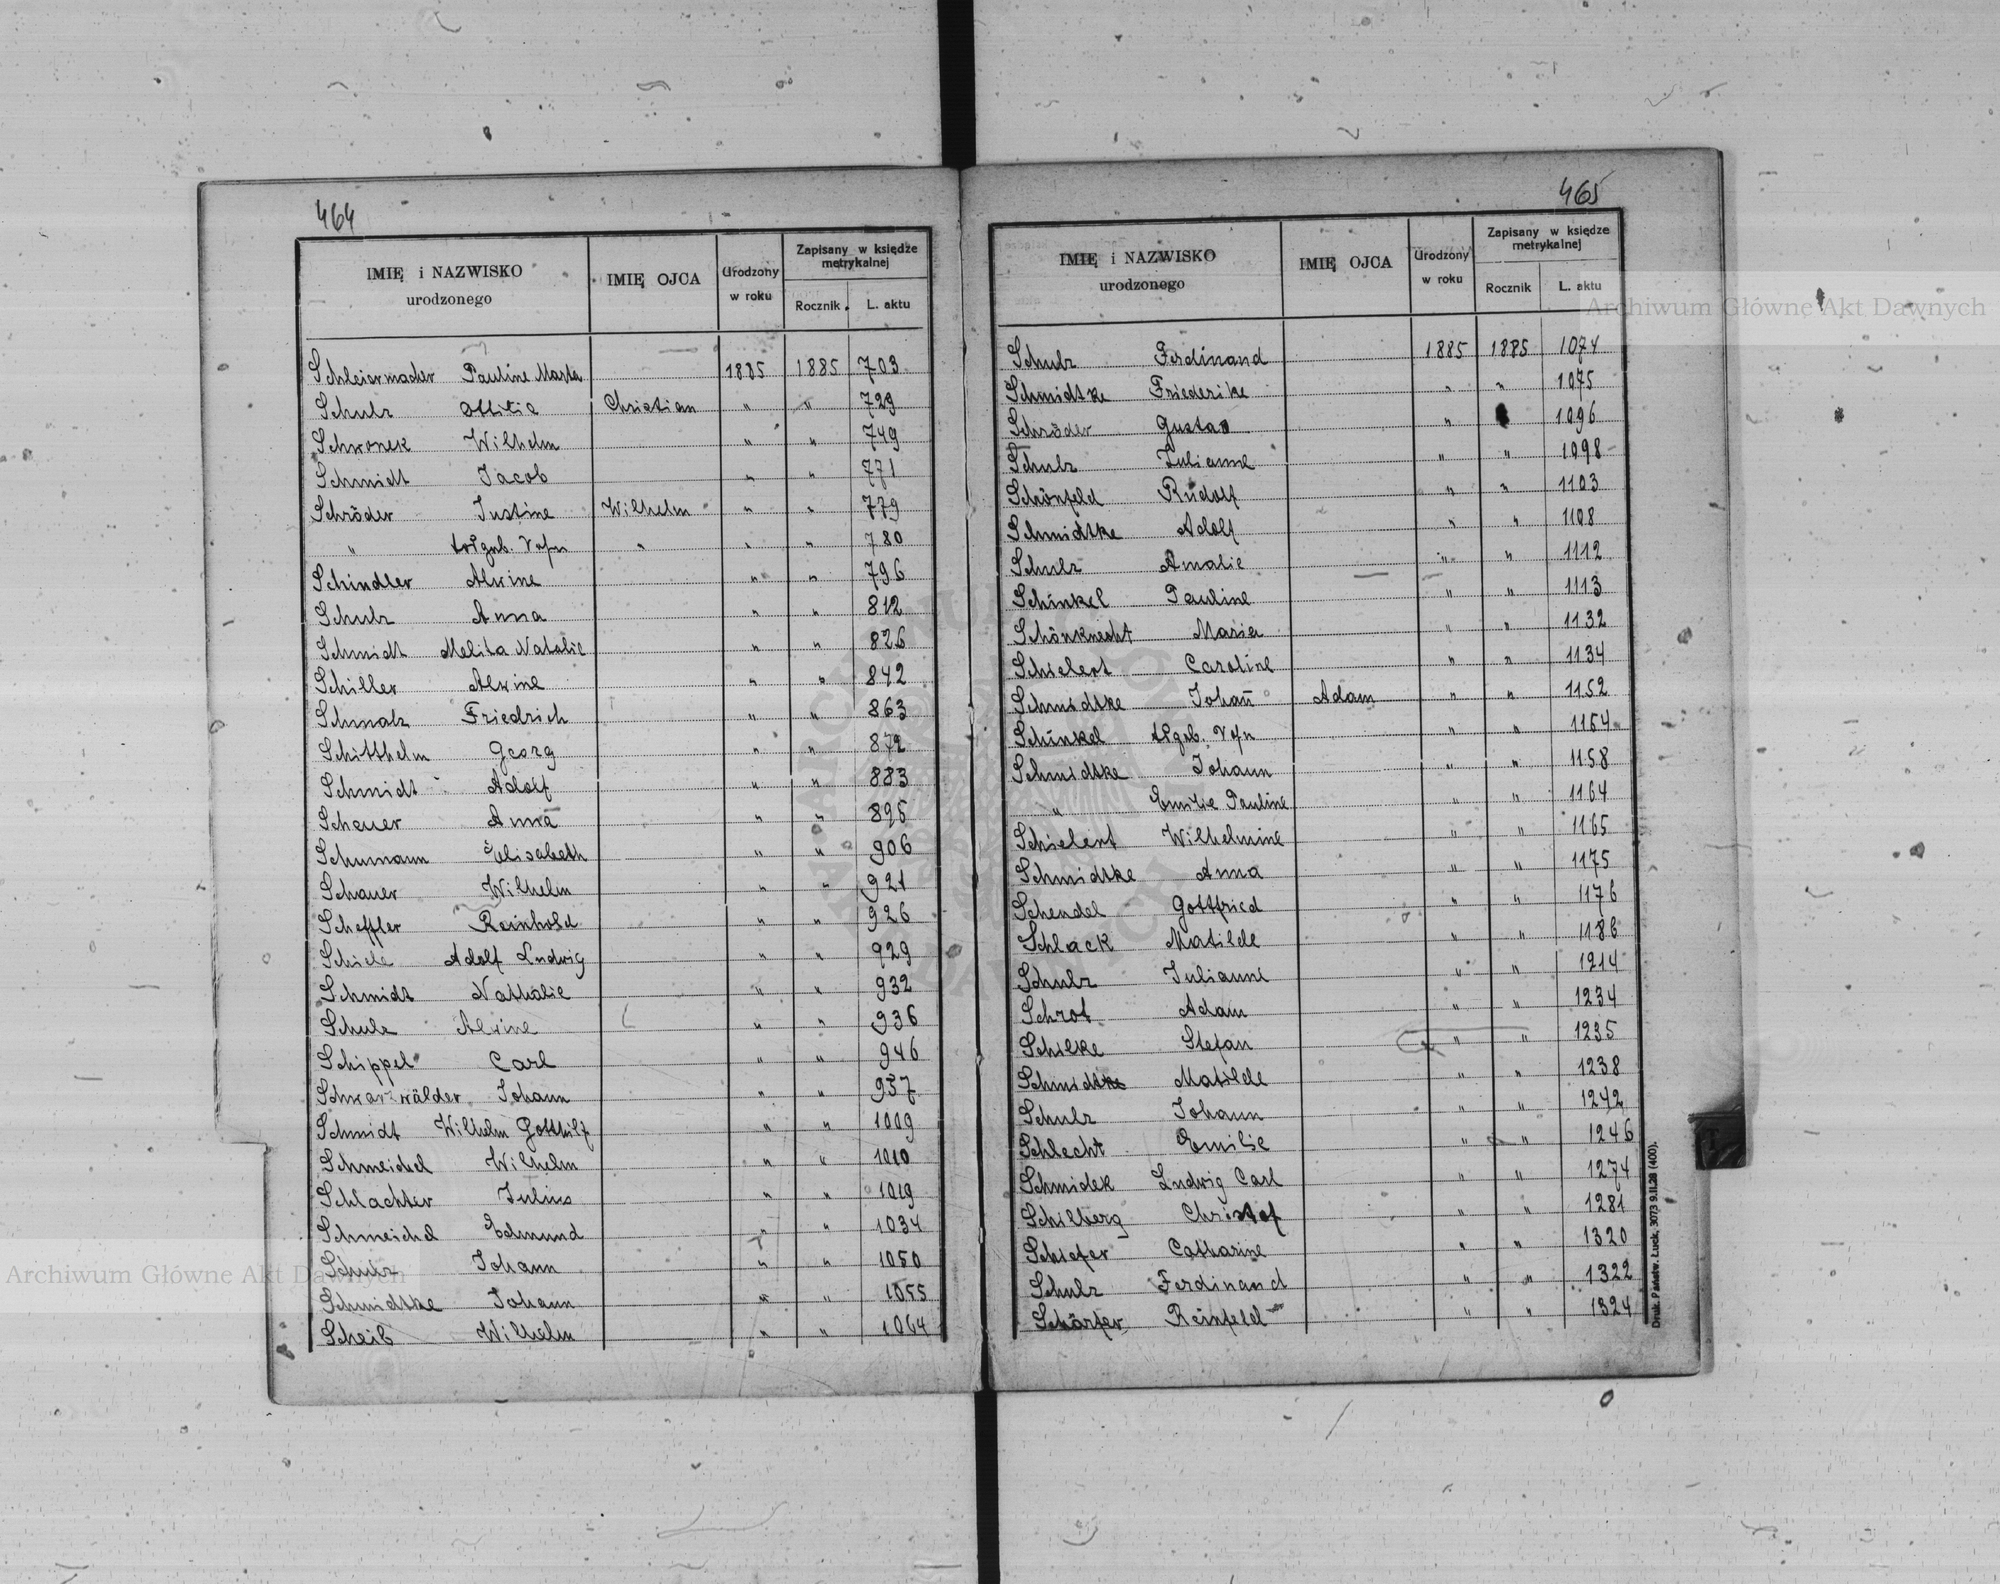 464
IMIĘ i NAZWISKO urodzonego IMIĘ OJCA Urodzony w roku Zapisany w księdze metrykalnej Rocznik L. aktu
Schleiermacher Pauline Marta 1885 1885 703
Schulz Ottilie Christian " " 729
Schwonek Wilhelm " " 749
Schmidt Jacob " " 771
Schröder Justine Wilhelm " " 779
" totgeb. " " " 780
Schindler Alwine " " 796
Schulz Anna " " 812
Schmidt Melita Natalie " " 826
Schiller Alwine " " 842
Schmalz Friedrich " " 863
Schitthelm Georg " " 872
Schmidt Adolf " " 883
Scheuer Anna " " 895
Schumann Elisabeth " " 906
Schauer Wilhelm " " 921
Scheffler Reinhold " " 926
Schiele Adolf Ludwig " " 929
Schmidt Nathalie " " 932
Schulz Alwine " " 936
Schippel Carl " " 946
Schwarzwälder Johann " " 957
Schmidt Wilhelm Gotthilf " " 1009
Schmeichel Wilhelm " " 1010
Schlachter Julius " " 1019
Schmeichel Edmund " " 1034
Schulz Johann " " 1050
Schmidtke Johann " " 1055
Scheib Wilhelm " " 1064
465
IMIĘ i NAZWISKO urodzonego IMIĘ OJCA Urodzony w roku Zapisany w księdze metrykalnej Rocznik L. aktu
Schulz Ferdinand 1885 1885 1074
Schmidtke Friederike " " 1075
Schröder Gustav " 1096
Schulz Julianne " " 1098
Schönfeld Rudolf " " 1103
Schmidtke Adolf " " 1108
Schulz Amalie " " 1112
Schinkel Pauline " " 1113
Schönknecht Maria " " 1132
Schielert Caroline " " 1134
Schmidtke Johañ Adam " " 1152
Schinkel " " 1154
Schmidtke Johann " " 1158
" Emilie Pauline " " 1164
Schielert Wilhelmine " " 1165
Schmidtke Anna " " 1175
Schendel Gottfried " " 1176
Schlack Matilde " " 1186
Schulz Julianne " " 1214
Schrot Adam " " 1234
Schilke Stefan " " 1235
Schmidtke Matilde " " 1238
Schulz Johann " " 1242
Schlecht Emilie " " 1246
Schmidek Ludwig Carl " " 1274
Schilberg Christof " " 1281
Schiefer Catharine " " 1320
Schulz Ferdinand " " 1322
Schärfer Reinfeld " " 1324
Druk. Państw. Łuck. 3073 9.II.28 (400).
Archiwum Główne Akt Dawnych
Archiwum Główne Akt Dawnych